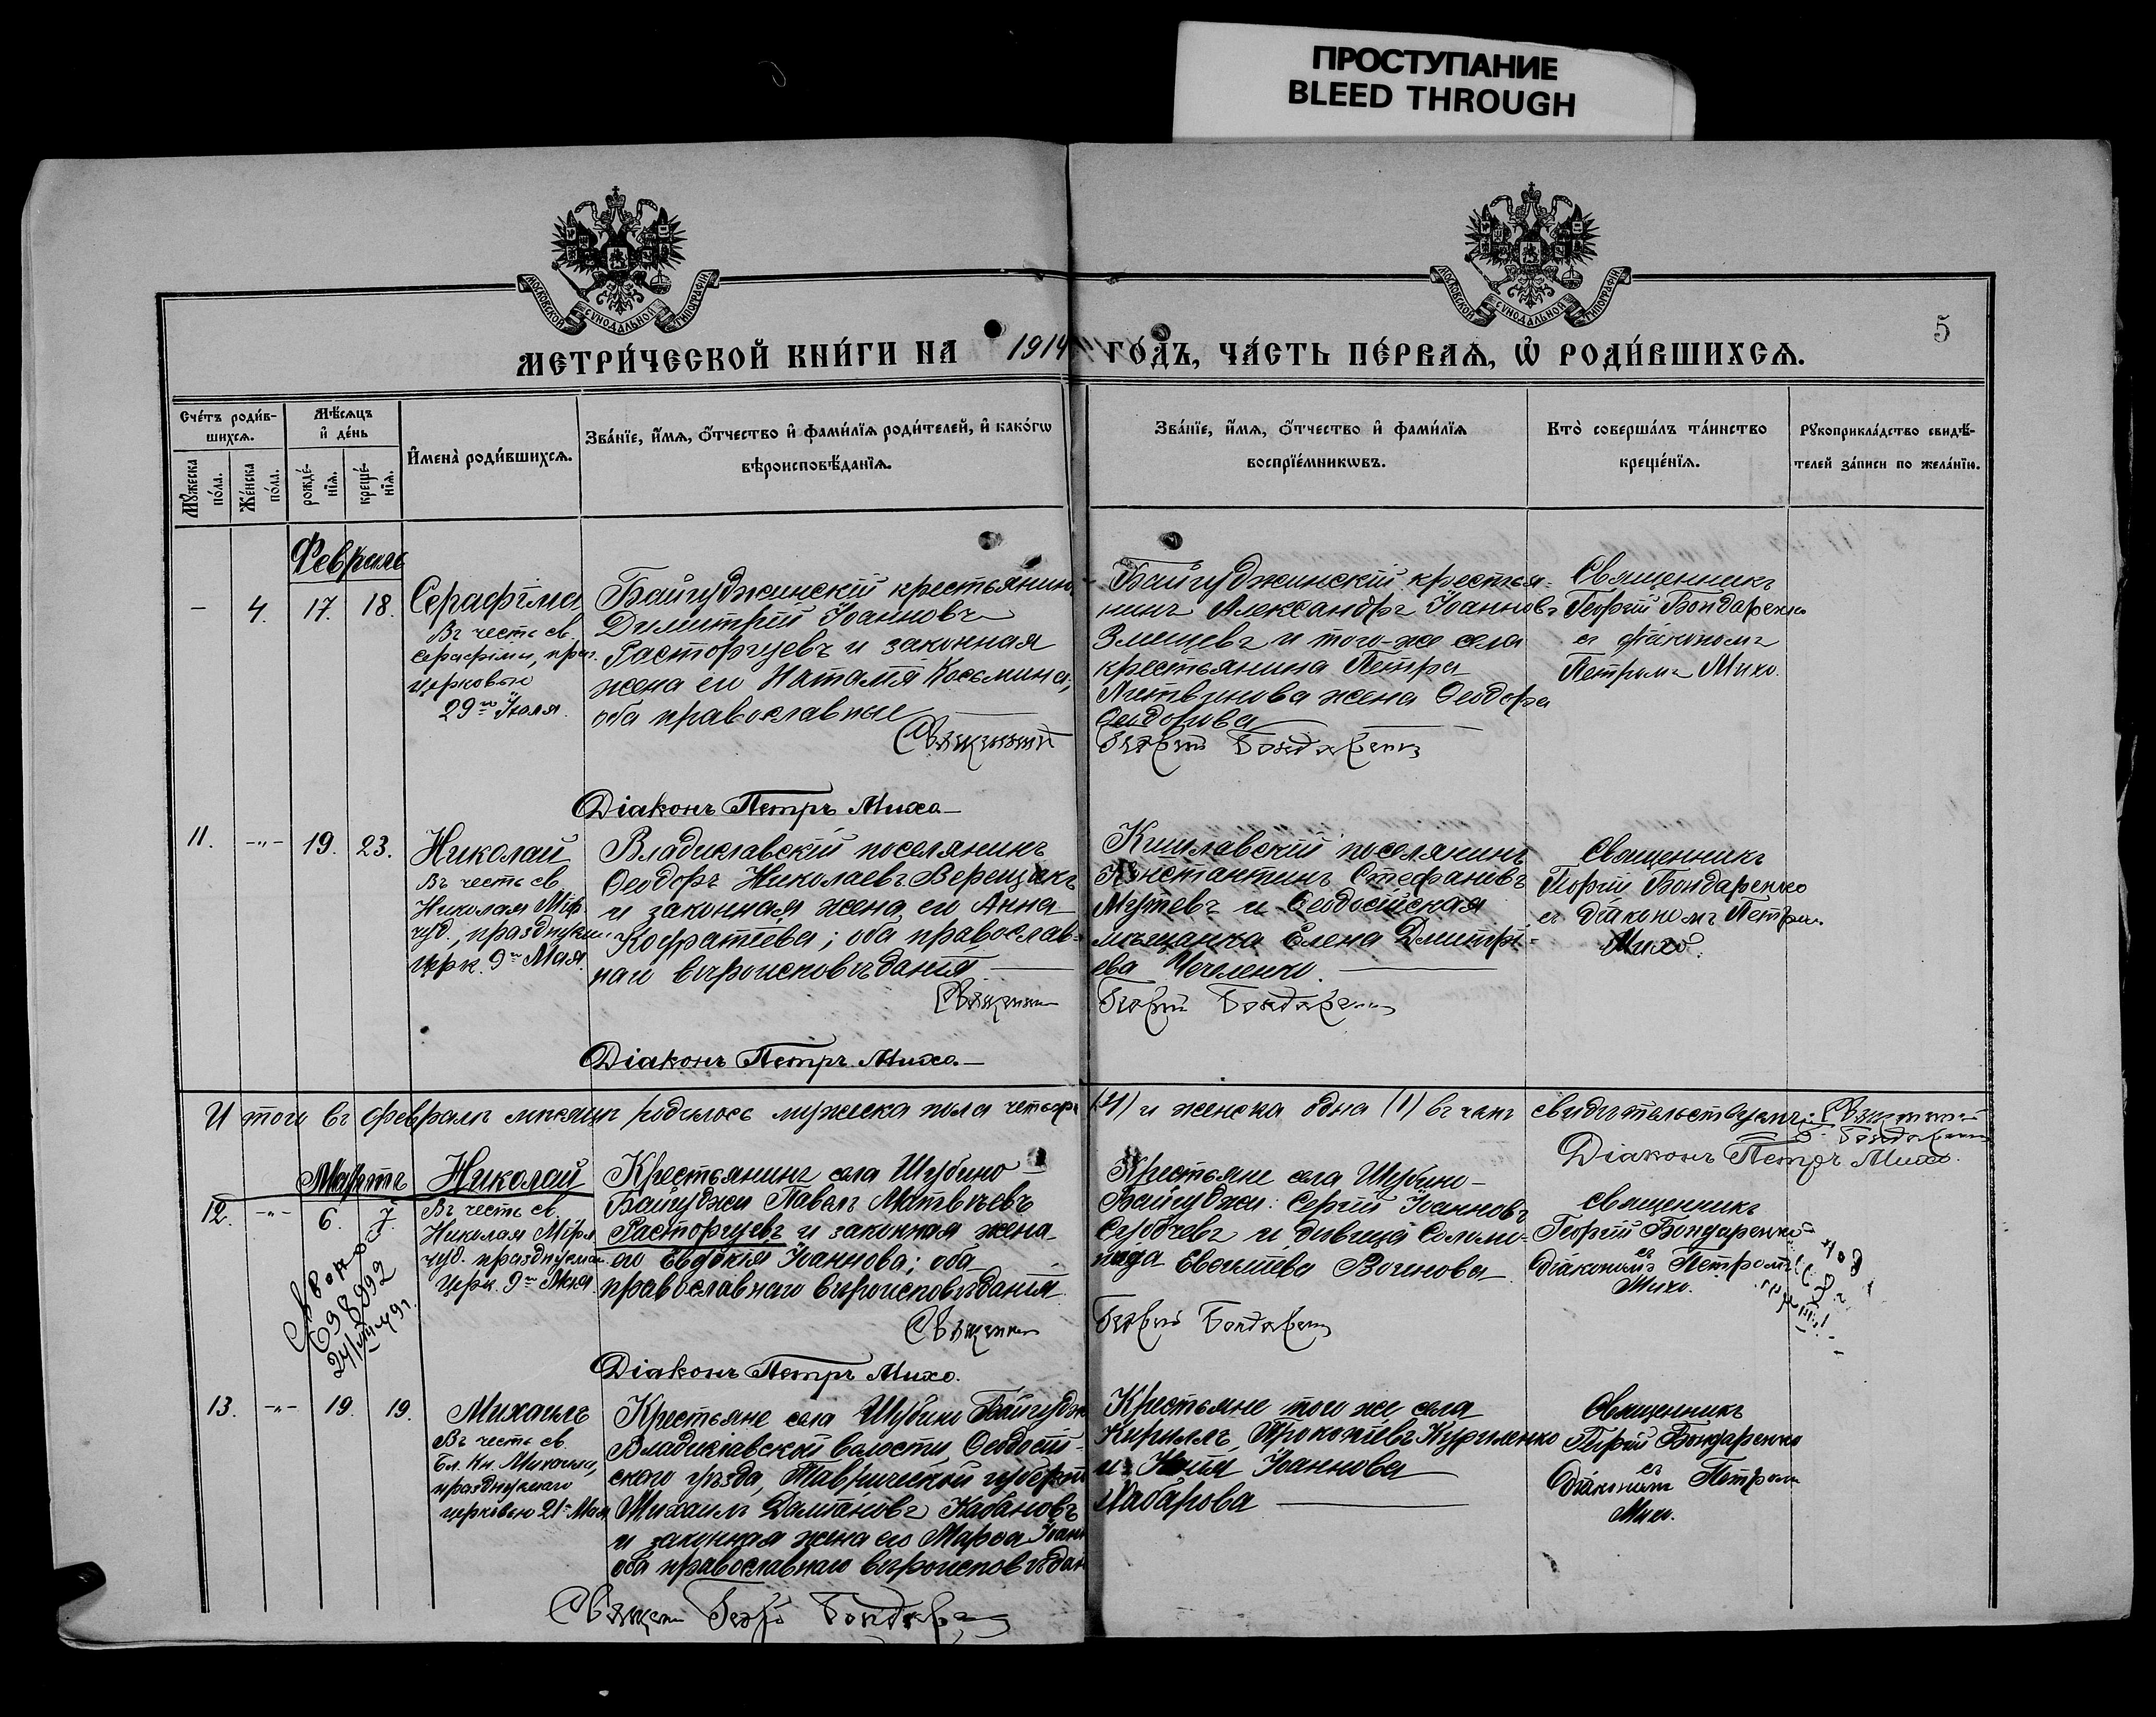 ПРОСТУПАНИЕ
BLEED THROUGH
МОСКОВСКОЙ СѴНОДАЛЬНОЙ ТИПОГРАФІИ
МОСКОВСКОЙ СѴНОДАЛЬНОЙ ТИПОГРАФІИ
5
МЕТРИ́ЧЕСКОЙ КНИ́ГИ НА 1914 ГО́ДЪ, ЧА́СТЬ ПЕ́РВАѦ, Ѡ҆ РОДИ́ВШИХСѦ.
Сче́тъ роди́в-
шихсѧ.
Мꙋ́жеска по́ла.
Же́нска по́ла.
Мѣ́сѧцъ
и҆ де́нь
рожде́-
нїѧ.
креще́-
нїѧ.
И҆мена̀ роди́вшихсѧ.
Зва́нїе, и҆́мѧ, ѻ҆́тчество и҆ фами́лїѧ роди́телей, и҆ како́гѡ
вѣроисповѣ́данїѧ.
Зва́нїе, и҆́мѧ, ѻ҆́тчество и҆ фами́лїѧ
воспрїе́мникѡвъ.
Кто̀ соверша́лъ та́инство
креще́нїѧ.
Рꙋкоприкла́дство свидѣ́-
телей за́писи по жела́нїю.
Февраль
– 4. 17. 18.
Серафіма
Въ честь св.
Серафімы, праз.
церковью
29го Іюля.
Байгуджинскій крестьянинъ
Димитрій Іоанновъ
Расторгуевъ и законная
жена его Наталія Косьмина;
оба православные
Священникъ
Байгуджинскій крестья-
нинъ Александръ Іоанновъ
Змещевъ и того-же села
крестьянина Петра
Литвинова жена Ѳеодора
Ѳеодорова
Георгій Бондаренко
Священникъ
Георгій Бондаренко
съ діакономъ
Петромъ Михо.
Діаконъ Петръ Михо
11. -"- 19. 23.
Николай
Въ честь св.
Николая Мір.
чуд., празднуем.
церк. 9го Мая.
Владиславскій поселянинъ
Ѳеодоръ Николаевъ Верещакъ
и законная жена его Анна
Кодратіева; оба православ-
наго вѣроисповѣданія
Священникъ
Кишлавскій поселянинъ
Константинъ Стефановъ
Мутевъ и Ѳеодосійская
мѣщанка Елена Дмитрі-
ева Чечеленко.
Георгій Бондаренко
Священникъ
Георгій Бондаренко
съ діакономъ Петромъ
Михо.
Діаконъ Петръ Михо.
И того въ февралѣ мѣсяцѣ родилось мужеска пола четыре (4) и женска одна (1) въ чемъ свидѣтельствуемъ: Священникъ
Г. Бондаренко
Діаконъ Петръ Михо.
Мартъ
12. -"- 6. 7.
Николай
Въ честь св.
Николая Мірл.
чуд. празднуемаго
церк. 9го Мая.
698992
Крестьянинъ села Шубино-
Байгуджи Павелъ Матвѣевъ
Расторгуевъ и законная жена
его Евдокія Іоаннова; оба
православнаго вѣроисповѣданія.
Священникъ
Крестьяне села Шубино-
Байгуджи: Сергій Іоанновъ
и дѣвица Соломо-
нида Евсѣвіева Воинова
Георгій Бондаренко
Священникъ
Георгій Бондаренко
съ
діакономъ Петромъ
Михо.
Діаконъ Петръ Михо.
13. -"- 19. 19.
Михаилъ
Въ честь св.
Бл. Кн. Михаила,
празднуемаго
церковью 21го Мая
Крестьяне села Шубино Байгудж
Владиславской волости, Ѳеодосій-
скаго уѣзда, Таврической губерніи
Михаилъ Даміановъ Кабановъ
и законная жена его Марѳа Іоанн
оба православнаго вѣроисповѣдан
Крестьяне того же села
Кириллъ Прокопіевъ Куриленко
и Іоаннова
Хабарова
Священникъ
Георгій Бондаренко
съ
Діакономъ Петромъ
Михо.
Священникъ Георгій Бондаренко